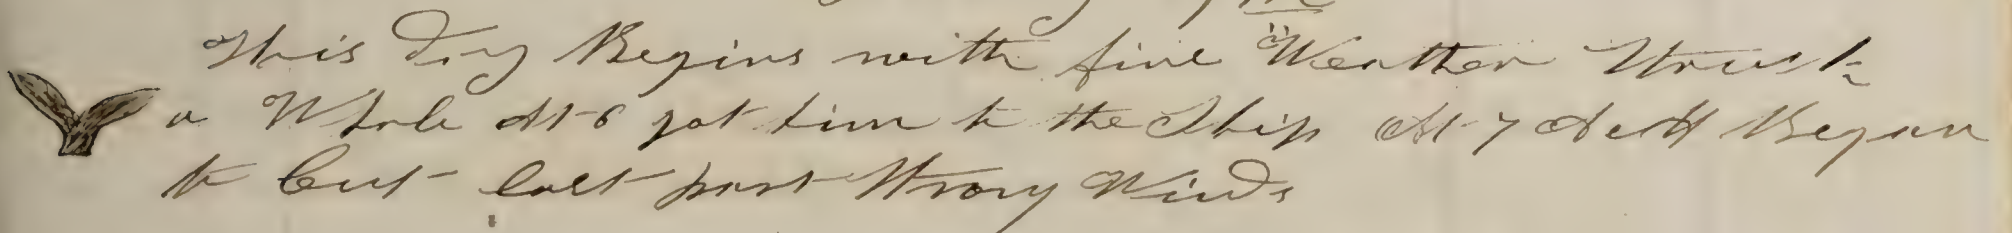 This Day Begins with fine Weather Struck
a Whale At 6 got him to the Ship At 7 A M Began
to Cut last part Strong Winds